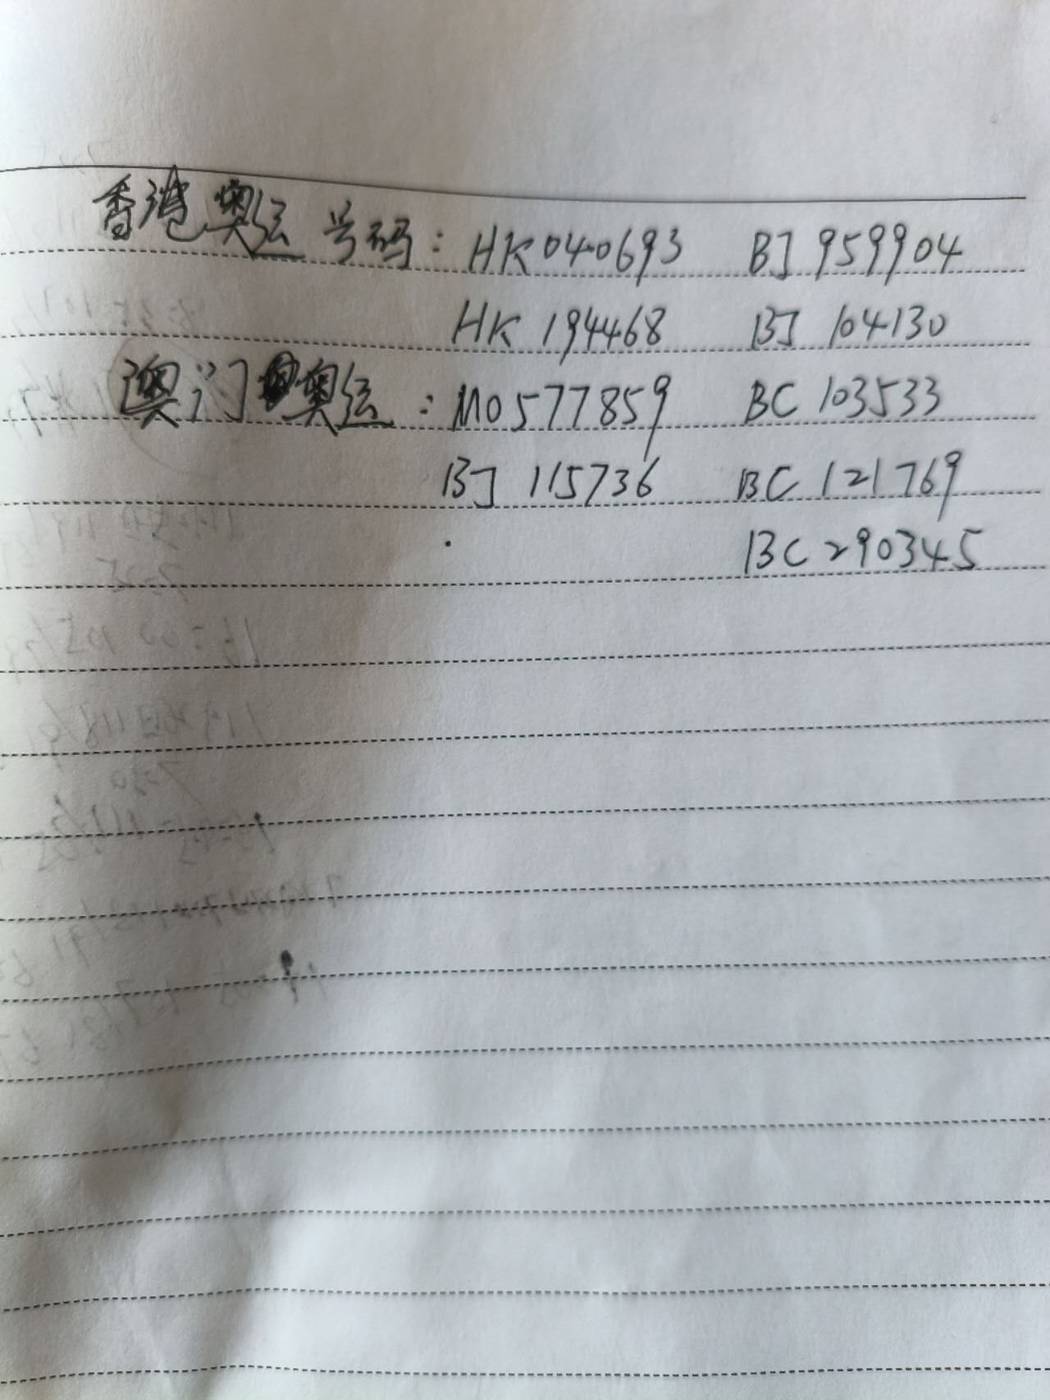 香港奥运号码: HK040693 BJ959904
HK 194468 BJ 104130
澳门奥运: MO577859 BC 103533
BJ 115736 BC 121769
BC 290345